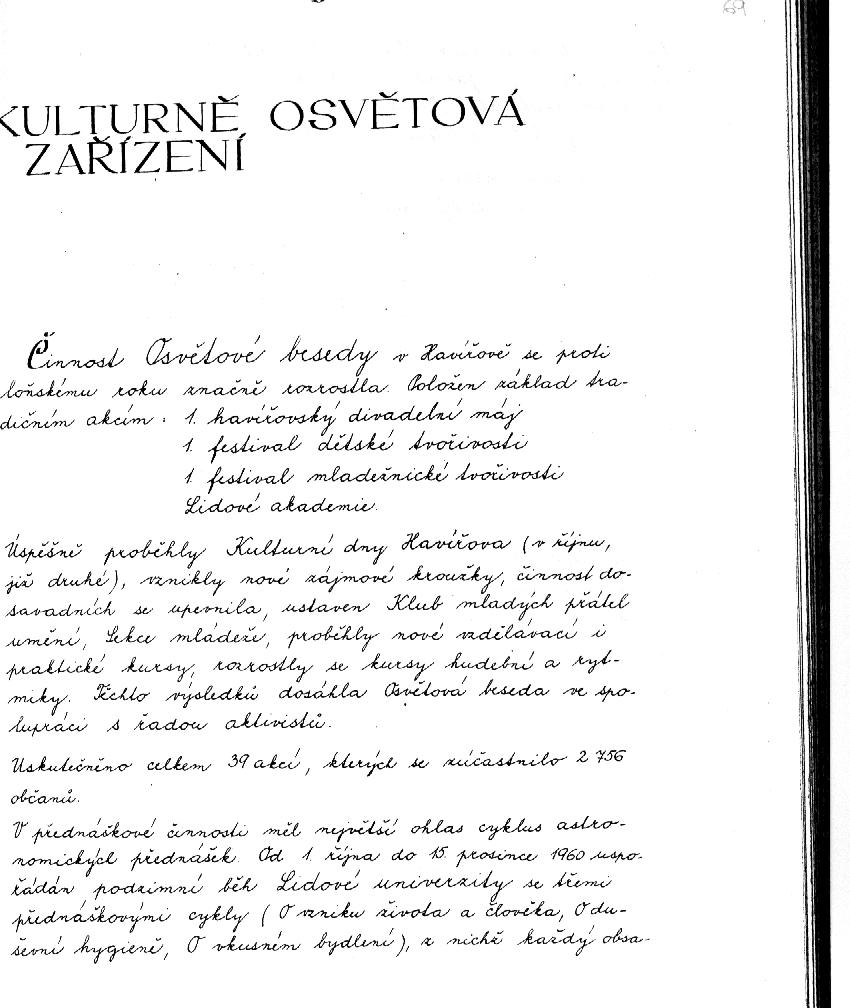 69
KULTURNĚ OSVĚTOVÁ
ZAŘÍZENÍ
Činnost Osvětové besedy v Havířově se proti
loňskému roku značně rozrostla. Položen základ tra-
dičním akcím: 1. havířovský divadelní máj
1. festival dětské tvořivosti
1. festival mladežnické tvořivosti
Lidové akademie.
Úspěšně proběhly Kulturní dny Havířova (v říjnu,
již druhé), vznikly nové zájmové kroužky, činnost do-
savadních se upevnila, ustaven Klub mladých přátel
umění, Sekce mládeže, proběhly nové vzdělávací i
praktické kursy, rozrostly se kursy hudební a ryt-
miky. Těchto výsledků dosáhla Osvětová beseda ve spo-
lupráci s řadou aktivistů.
Uskutečněno celkem 39 akcí, kterých se zúčastnilo 2 756
občanů.
V přednáškové činnosti měl největší ohlas cyklus astro-
nomických přednášek. Od 1. října do 15. prosince 1960 uspo-
řádán podzimní běh Lidové univerzity se třemi
přednáškovými cykly (O vzniku života a člověka, O du-
ševní hygieně, O vkusném bydlení), z nichž každý obsa-